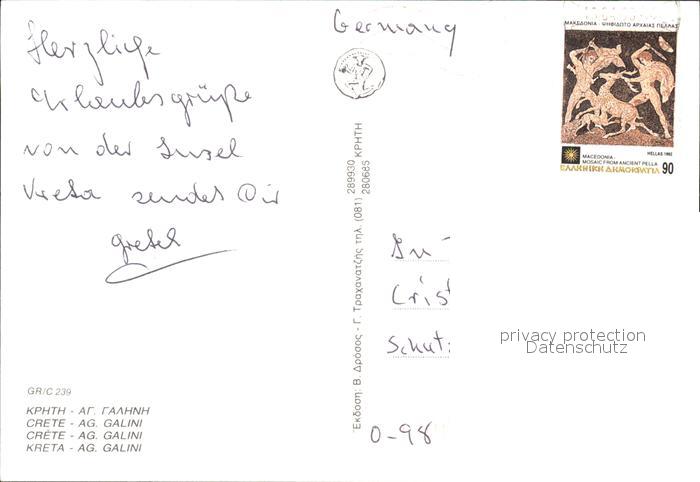 Herzliche
Urlaubsgrüße
von der Insel
Kreta sendet Dir
Gretel
GR/C 239
ΚΡΗΤΗ - ΑΓ. ΓΑΛΗΝΗ
CRETE - AG. GALINI
CRÈTE - AG. GALINI
KRETA - AG. GALINI
Έκδοση: Β. Δρόσος - Γ. Τραχανατζής τηλ. (081) 289930 ΚΡΗΤΗ
280685
Germany
ΜΑΚΕΔΟΝΙΑ - ΨΗΦΙΔΩΤΟ ΑΡΧΑΙΑΣ ΠΕΛΛΑΣ
HELLAS 1992
MACEDONIA -
MOSAIC FROM ANCIENT PELLA
ΕΛΛΗΝΙΚΗ ΔΗΜΟΚΡΑΤΙΑ 90
Crist
Schut
D-98
privacy protection
Datenschutz